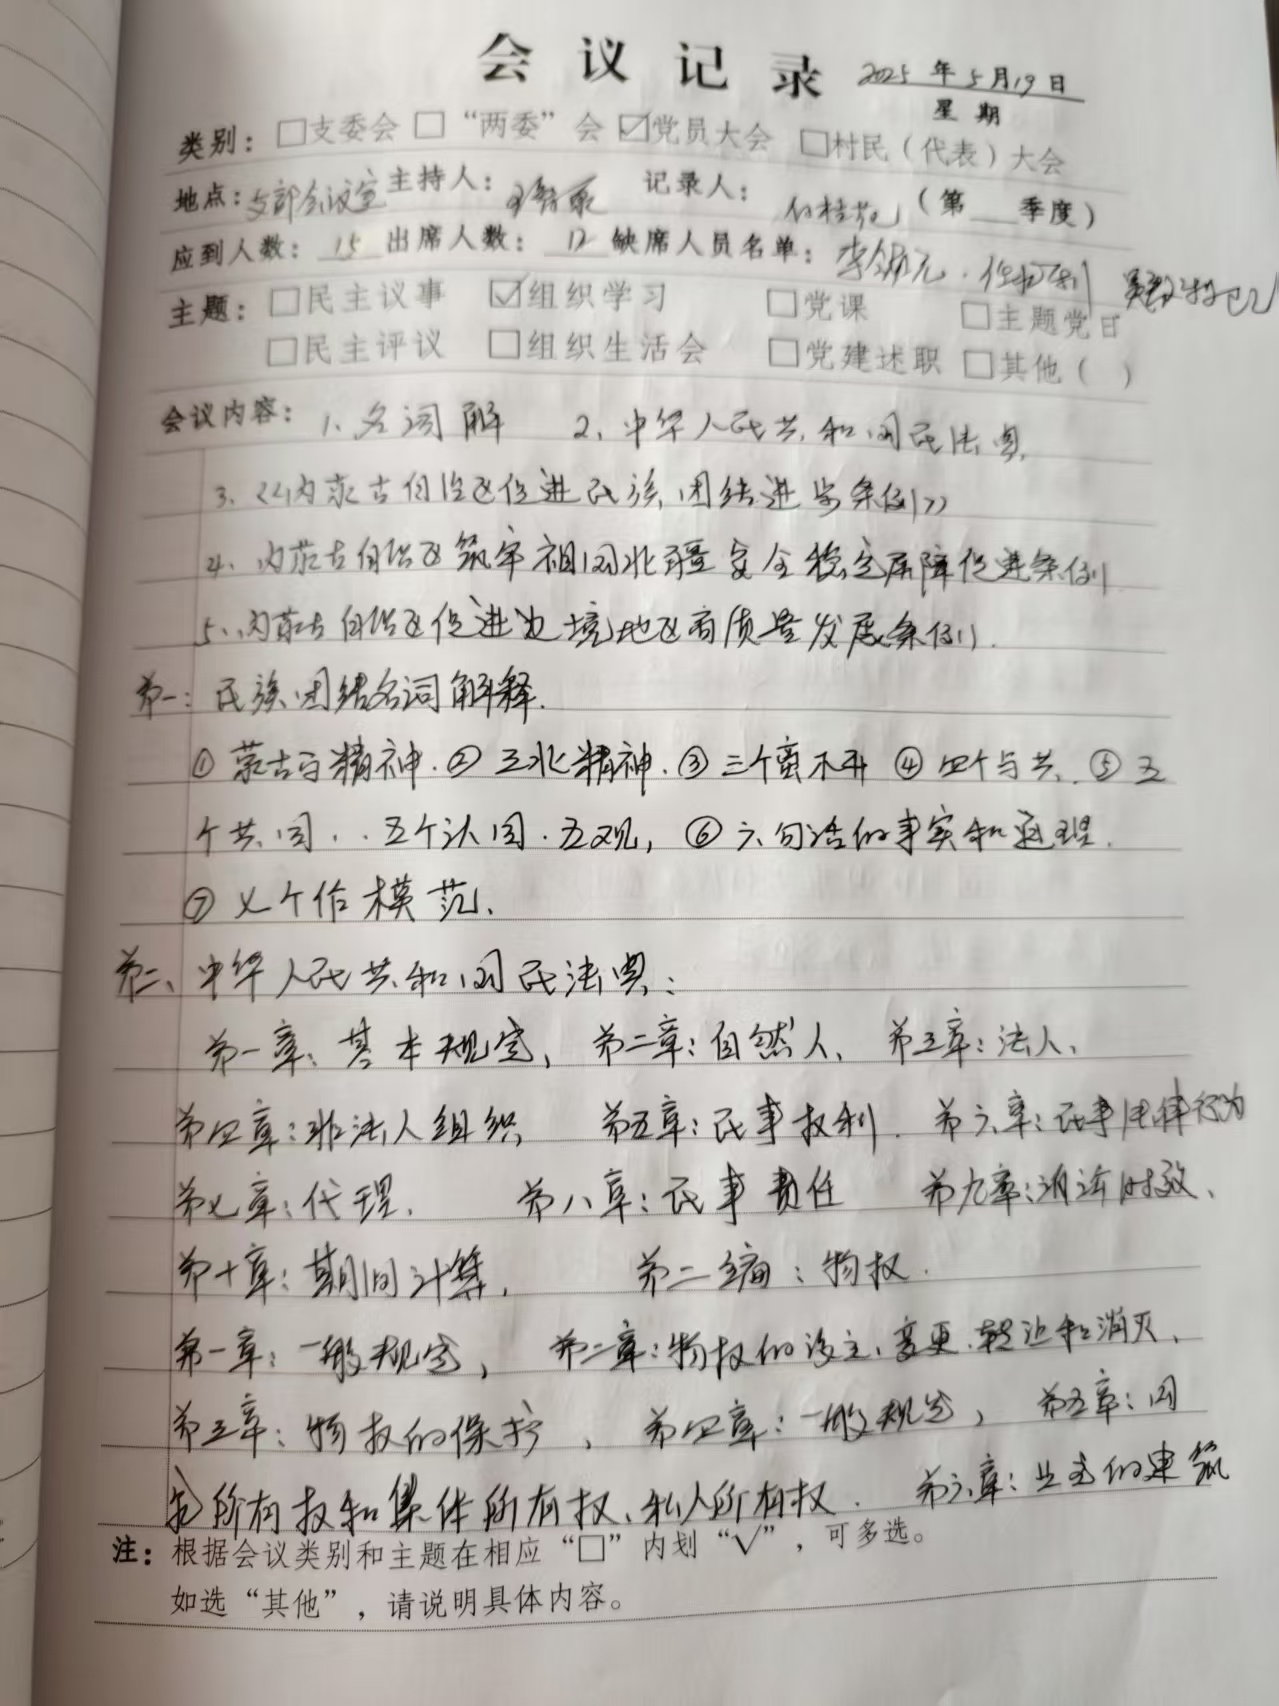 会议记录 2025年5月19日
星期
类别：□支委会 □“两委”会 ☑党员大会 □村民（代表）大会
地点：支部会议室 主持人： 记录人： （第__季度）
应到人数：15 出席人数：12 缺席人员名单：
主题：□民主议事 ☑组织学习 □党课 □主题党日
□民主评议 □组织生活会 □党建述职 □其他（ ）
会议内容：1、名词解 2、中华人民共和国民法典.
3、《内蒙古自治区促进民族团结进步条例》
4、内蒙古自治区筑牢祖国北疆安全稳定屏障促进条例
5、内蒙古自治区促进边境地区高质量发展条例.
第一：民族团结名词解释.
①蒙古马精神.②三北精神.③三个离不开 ④四个与共.⑤五
个共同..五个认同.五观，⑥六句话的事实和道理.
⑦七个作模范、
第二、中华人民共和国民法典：
第一章：基本规定、第二章：自然人、第三章：法人、
第四章：非法人组织 第五章：民事权利.第六章：民事法律行为
第七章：代理. 第八章：民事责任 第九章：诉讼时效、
第十章：期间计算. 第二编：物权.
第一章：一般规定， 第二章：物权的设立、变更、转让和消灭.
第三章：物权的保护， 第四章：一般规定， 第五章：国
家所有权和集体所有权、私人所有权. 第六章：业主的建筑
注：根据会议类别和主题在相应“□”内划“√”，可多选。
如选“其他”，请说明具体内容。